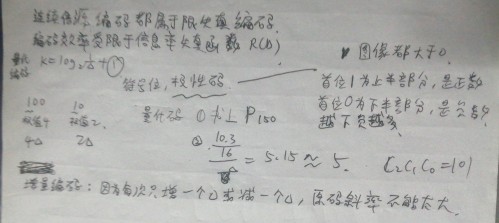 连续信源编码都属于限失真编码.
编码效率受限于信息率失真函数 R(D)
K=log₂ + ①
符号位, 极性码
图像都大于0.
首位1为上半部分, 是正数
首位0为下半部分, 是负数
越下负越多.
100
10
4Δ
2Δ
量化码 P150
②. 10.3/16 = 5.15 ≈ 5. C₂C₁C₀=101
增量编码: 因为每次只增一个Δ或减一个Δ, 原码斜率不能太大.